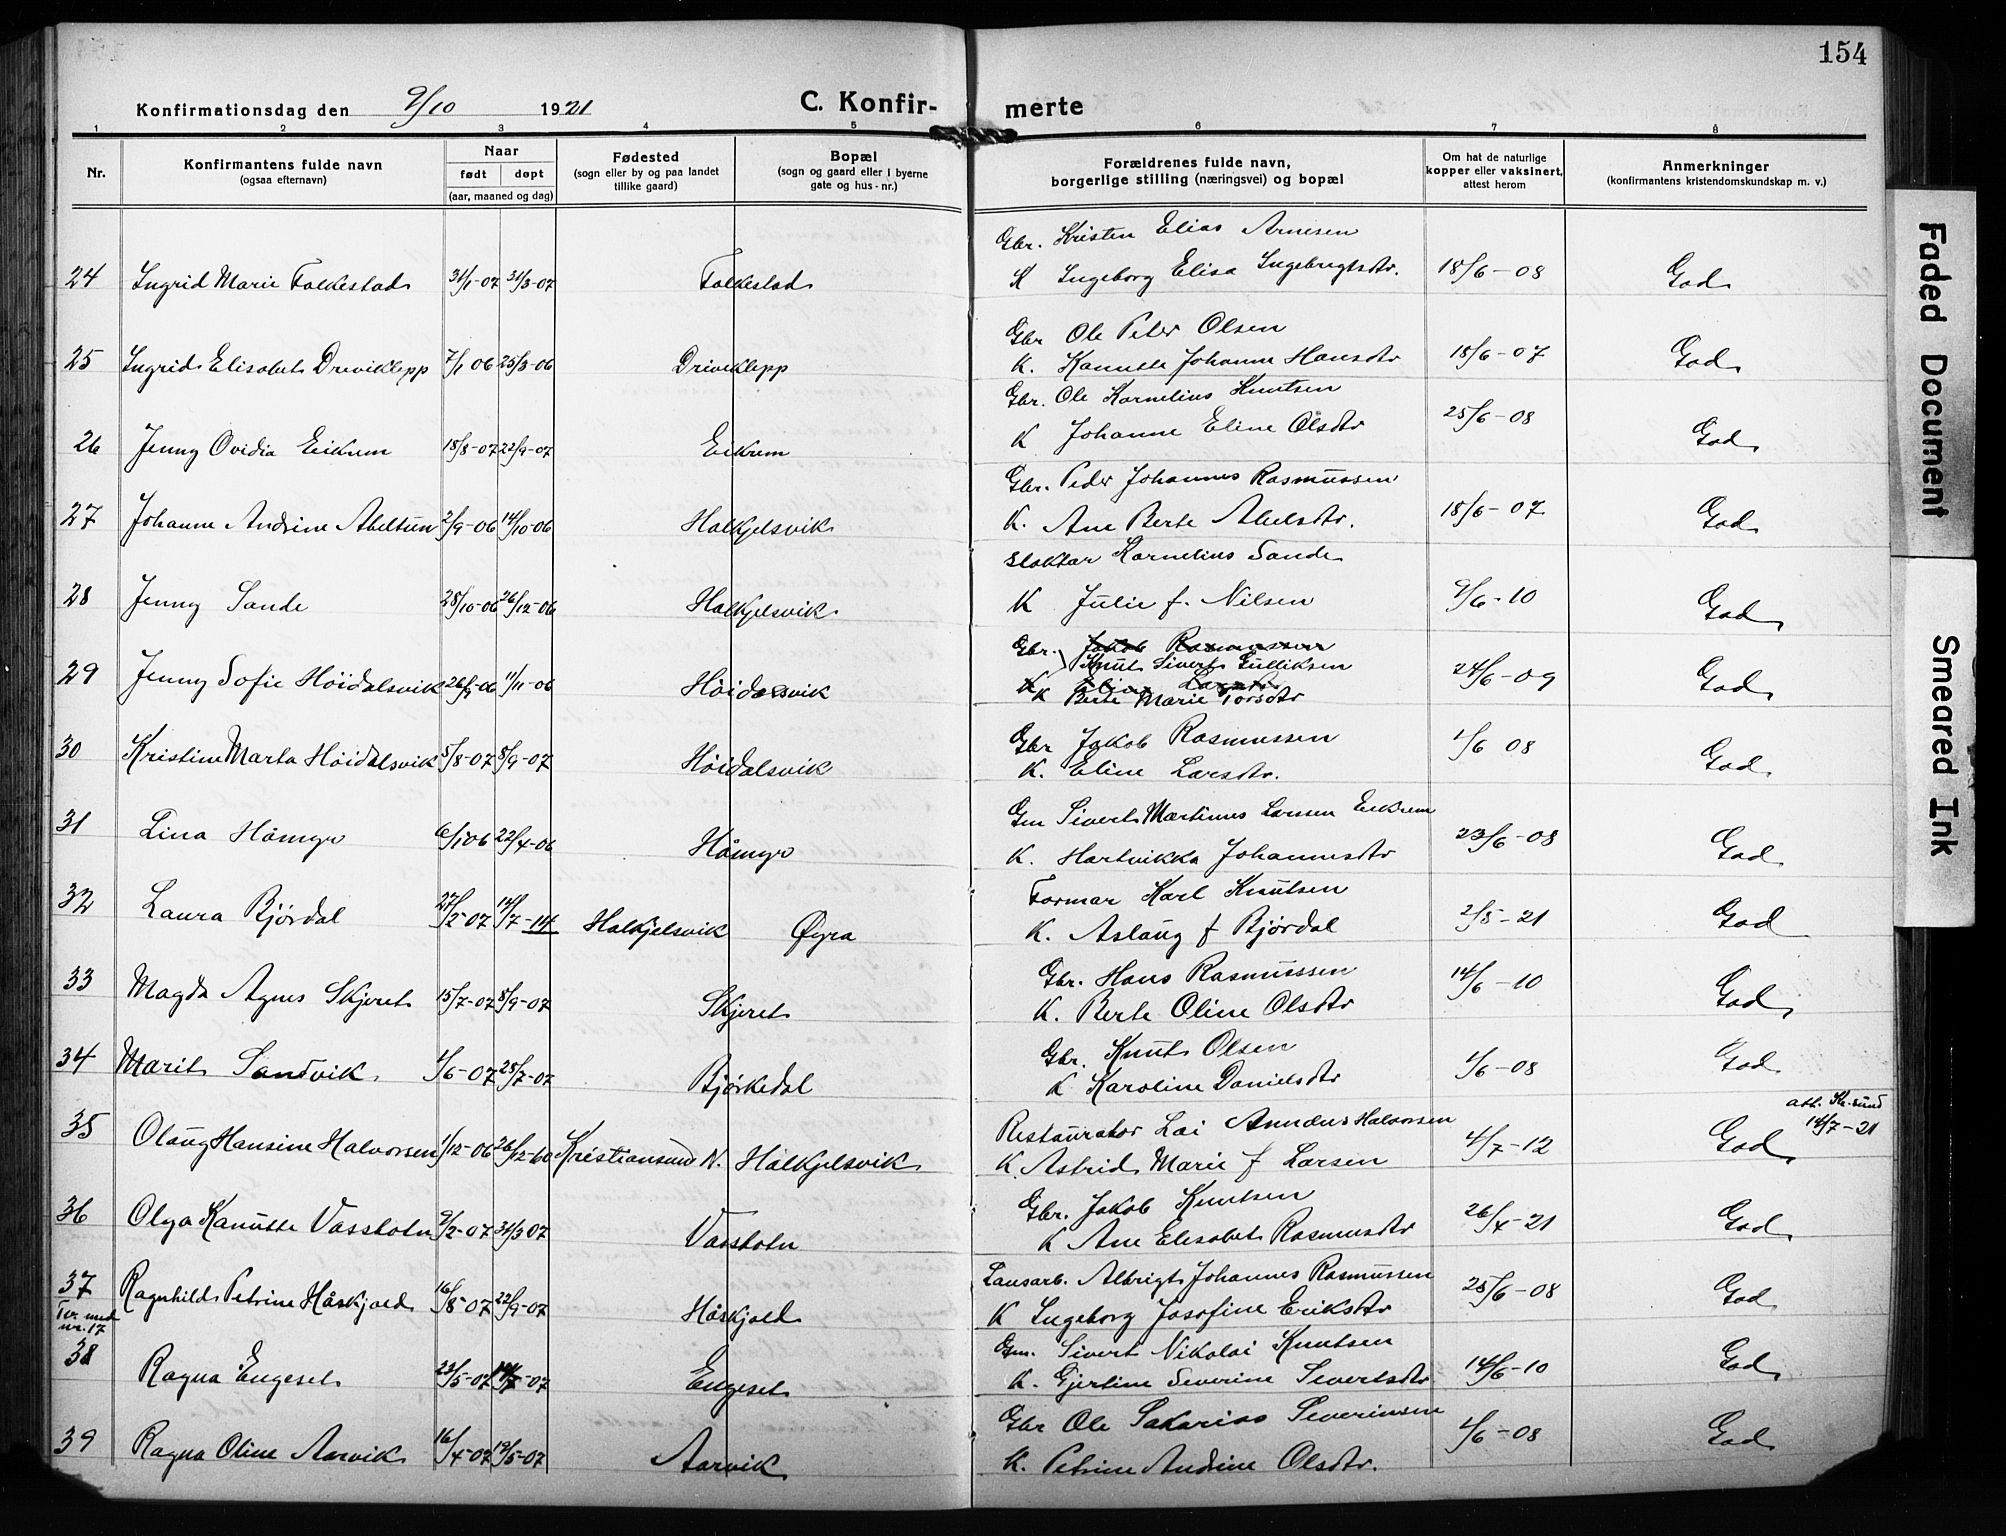 154
Konfirmationsdag den 9/10 1921 C. Konfir- merte
1 2 3 4 5 6 7 8
Nr. Konfirmantens fulde navn (ogsaa efternavn) Naar født døpt (aar, maaned og dag) Fødested (sogn eller by og paa landet tillike gaard) Bopæl (sogn og gaard eller i byerne gate og hus-nr.) Forældrenes fulde navn, borgerlige stilling (næringsvei) og bopæl Om hat de naturlige kopper eller vaksinert, attest herom Anmerkninger (konfirmantens kristendomskundskap m. v.)
Gbr. Kristen Elias Arnesen
24 Ingrid Marie Folkestad 31/1-07 31/3-07 Folkestad K Ingeborg Elisa Ingebrigtsdtr. 18/6-08 God
Gbr Ole Peter Olsen
25 Ingrid Elisabet Driveklepp 7/1 06 25/3-06 Driveklepp K. Kanutte Johanne Hansdtr 18/6-07 God
Gbr. Ole Kornelius Knutsen
26 Jenny Ovidia Eikrem 18/8-07 22/9-07 Eikrem K Johanne Eline Olsdtr 25/6-08 God
Gbr. Peder Johannes Rasmussen
27 Johanne Andrine Abeltun 2/9-06 14/10-06 Halkjelsvik K. Ane Berte Abelsdtr. 18/6-07 God
Slaktar Kornelius Sande
28 Jenny Sande 28/10-06 26/12-06 Halkjelsvik K Julie f. Nilsen 9/6-10 God
Gbr. Jakob Rasmussen
Knut Sivert Gulliksen
29 Jenny Sofie Höidalsvik 26/9-06 11/11-06 Höidalsvik K Eline Larsdtr 24/6-09 God
K Berte Marie Torsdtr
Gbr Jakob Rasmussen
30 Kristine Marta Höidalsvik 5/8-07 8/9-07 Höidalsvik K. Eline Larsdtr. 1/6 08 God
Gm Sivert Martinus Larsen Eikrem
31 Lina Håmyr 6/1 06 22/4-06 Håmyr K. Hartvikka Johannesdtr 23/6-08 God
Formar Karl Knutsen
32 Laura Bjørdal 27/2-07 14/7-14 Halkjelsvik Øyra K. Aslaug f Bjørdal 2/5-21 God
Gbr. Hans Rasmussen
33 Magda Agnes Skjeret 15/7-07 8/9-07 Skjeret K. Berte Oline Olsdtr 14/6-10 God
Gbr. Knut Olsen
34 Marit Sandvik 4/6-07 28/7-07 Bjørkedal K Karoline Danielsdtr 4/6-08 God
att. Kr.sund
14/7-21
Restauratør Lai Annæus Halvorsen
35 Olaug Hansine Halvorsen 1/12-06 26/12-60 Kristiansund N. Halkjelsvik K Astrid Marie f Larsen 4/7-12 God
Gbr. Jakob Knutsen
36 Olga Kanutte Vassbotn 9/2-07 31/3 07 Vassbotn K Ane Elisabet Rasmusdtr 26/4-21 God
Lausarb. Albrigt Johannes Rasmussen
37 Ragnhild Petrine Håskjold 16/8-07 22/9-07 Håskjold K Ingeborg Josofine Eriksdtr 25/6-08 God
Ter. med
nr. 17
Gm. Sivert Nikolai Knutsen
38 Ragna Engeset 23/5-07 14/7-07 Engeset K. Gjertine Severine Sivertsdtr 14/6-10 God
Gbr Ole Sakarias Severinsen
39 Ragna Oline Aarvik 16/4-07 19/5-07 Aarvik K. Petrine Andrine Olsdtr. 4/6-08 God
Faded Document
Smeared Ink